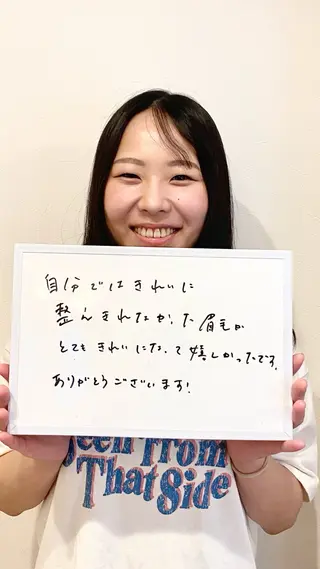 自分ではきれいに
整えきれなかった眉毛が
とてもきれいになって嬉しかったです。
ありがとうございます!
Seen From
That Side